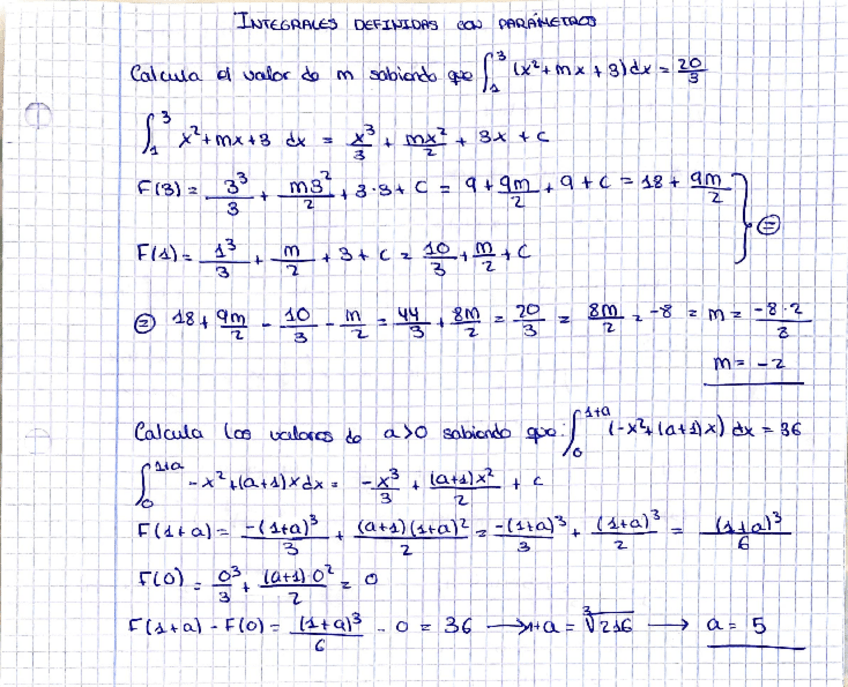 INTEGRALES DEFINIDAS CON PARÁMETROS
Calcula el valor de m sabiendo que ∫₁³ (x²+mx+3)dx = 20/3
∫₁³ x²+mx+3 dx = x³/3 + mx²/2 + 3x + c
F(3) = 3³/3 + m3²/2 + 3·3 + C = 9 + 9m/2 + 9 + C = 18 + 9m/2
F(1) = 1³/3 + m/2 + 3 + C = 10/3 + m/2 + C
⊜
⊜ 18 + 9m/2 - 10/3 - m/2 = 44/3 + 8m/2 = 20/3 = 8m/2 = -8 = m = -8·2/8
m = -2
Calcula los valores de a>0 sabiendo que: ∫₀¹⁺ᵃ (-x²+(a+1)x) dx = 36
∫₀¹⁺ᵃ -x²+(a+1)x dx = -x³/3 + (a+1)x²/2 + c
F(1+a) = -(1+a)³/3 + (a+1)(1+a)²/2 = -(1+a)³/3 + (1+a)³/2 = (1+a)³/6
F(0) = 0³/3 + (a+1)0²/2 = 0
F(1+a) - F(0) = (1+a)³/6 - 0 = 36 → 1+a = ³√216 → a = 5